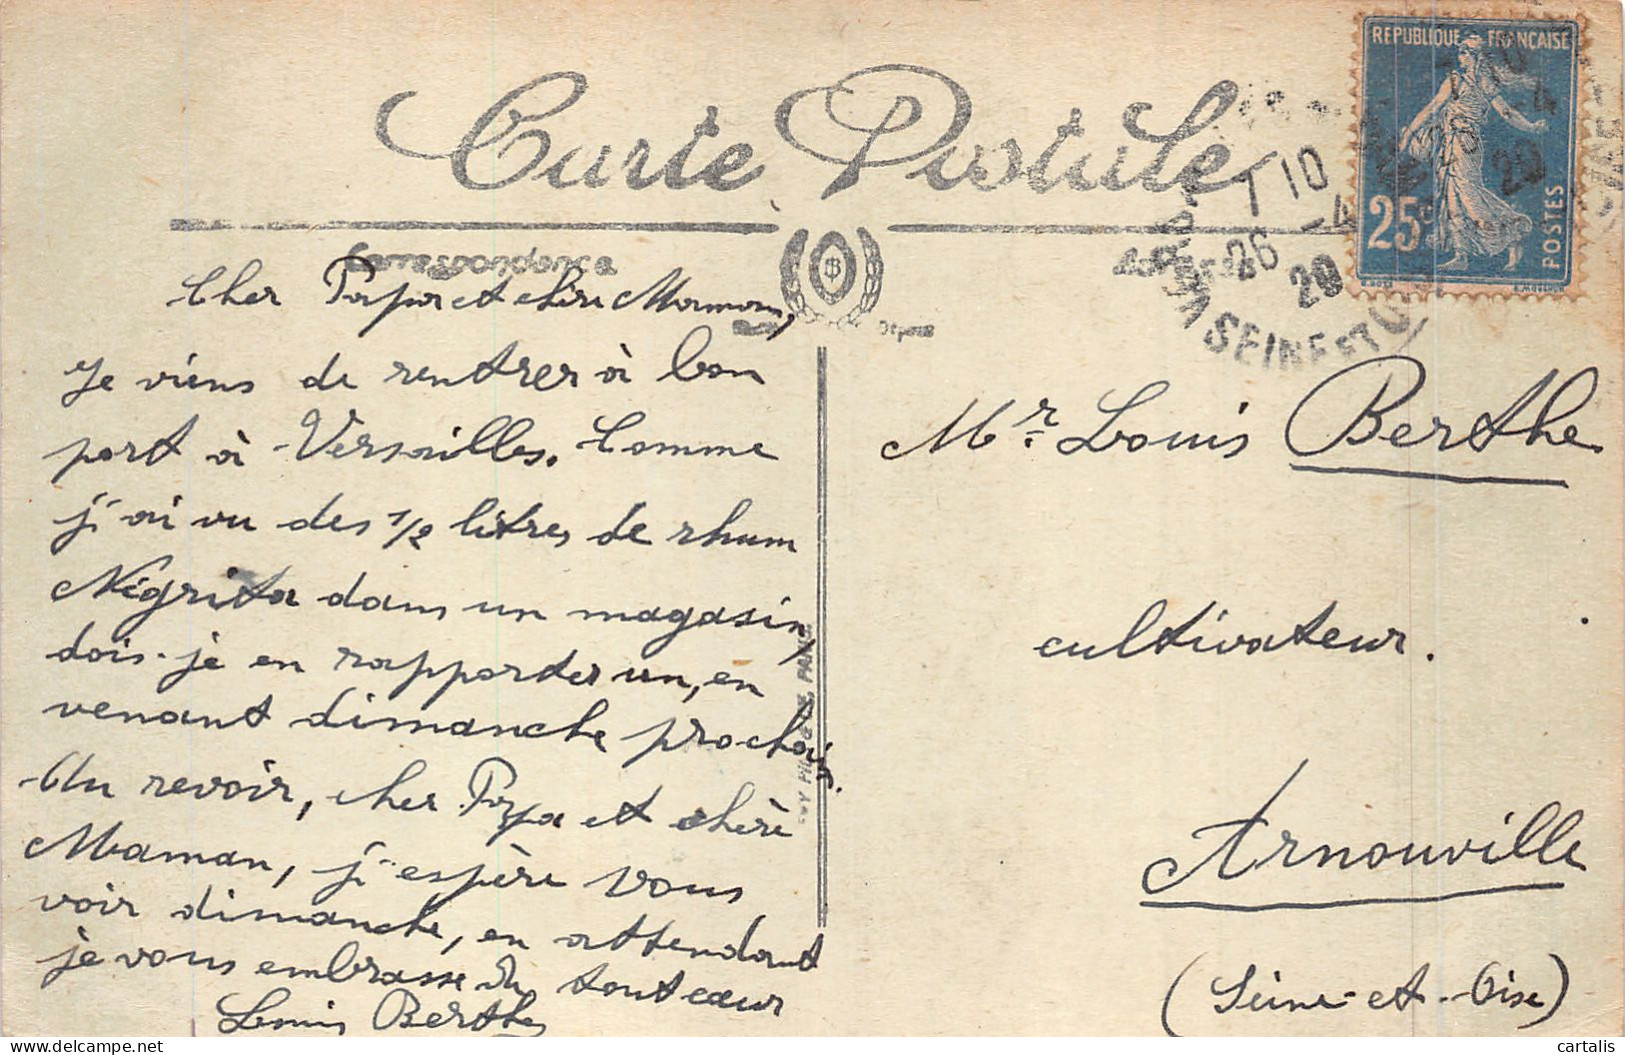 Carte Postale
RÉPUBLIQUE FRANÇAISE
25c
POSTES
T 10
26 -4
20
SEINE ET
Correspondance
Adresse
Cher Papa et chère Maman,
je viens de rentrer à bon
port à Versailles. Comme
j'ai vu des 1/2 litres de rhum
Négrita dans un magasin,
dois-je en rapporter un, en
venant dimanche prochain.
Au revoir, cher Papa et chère
Maman, j'espère vous
voir dimanche, en attendant
je vous embrasse de tout cœur
Louis Berthe
Mr. Louis Berthe
cultivateur.
Arnouville
(Seine-et-Oise)
cartalis
delcampe.net